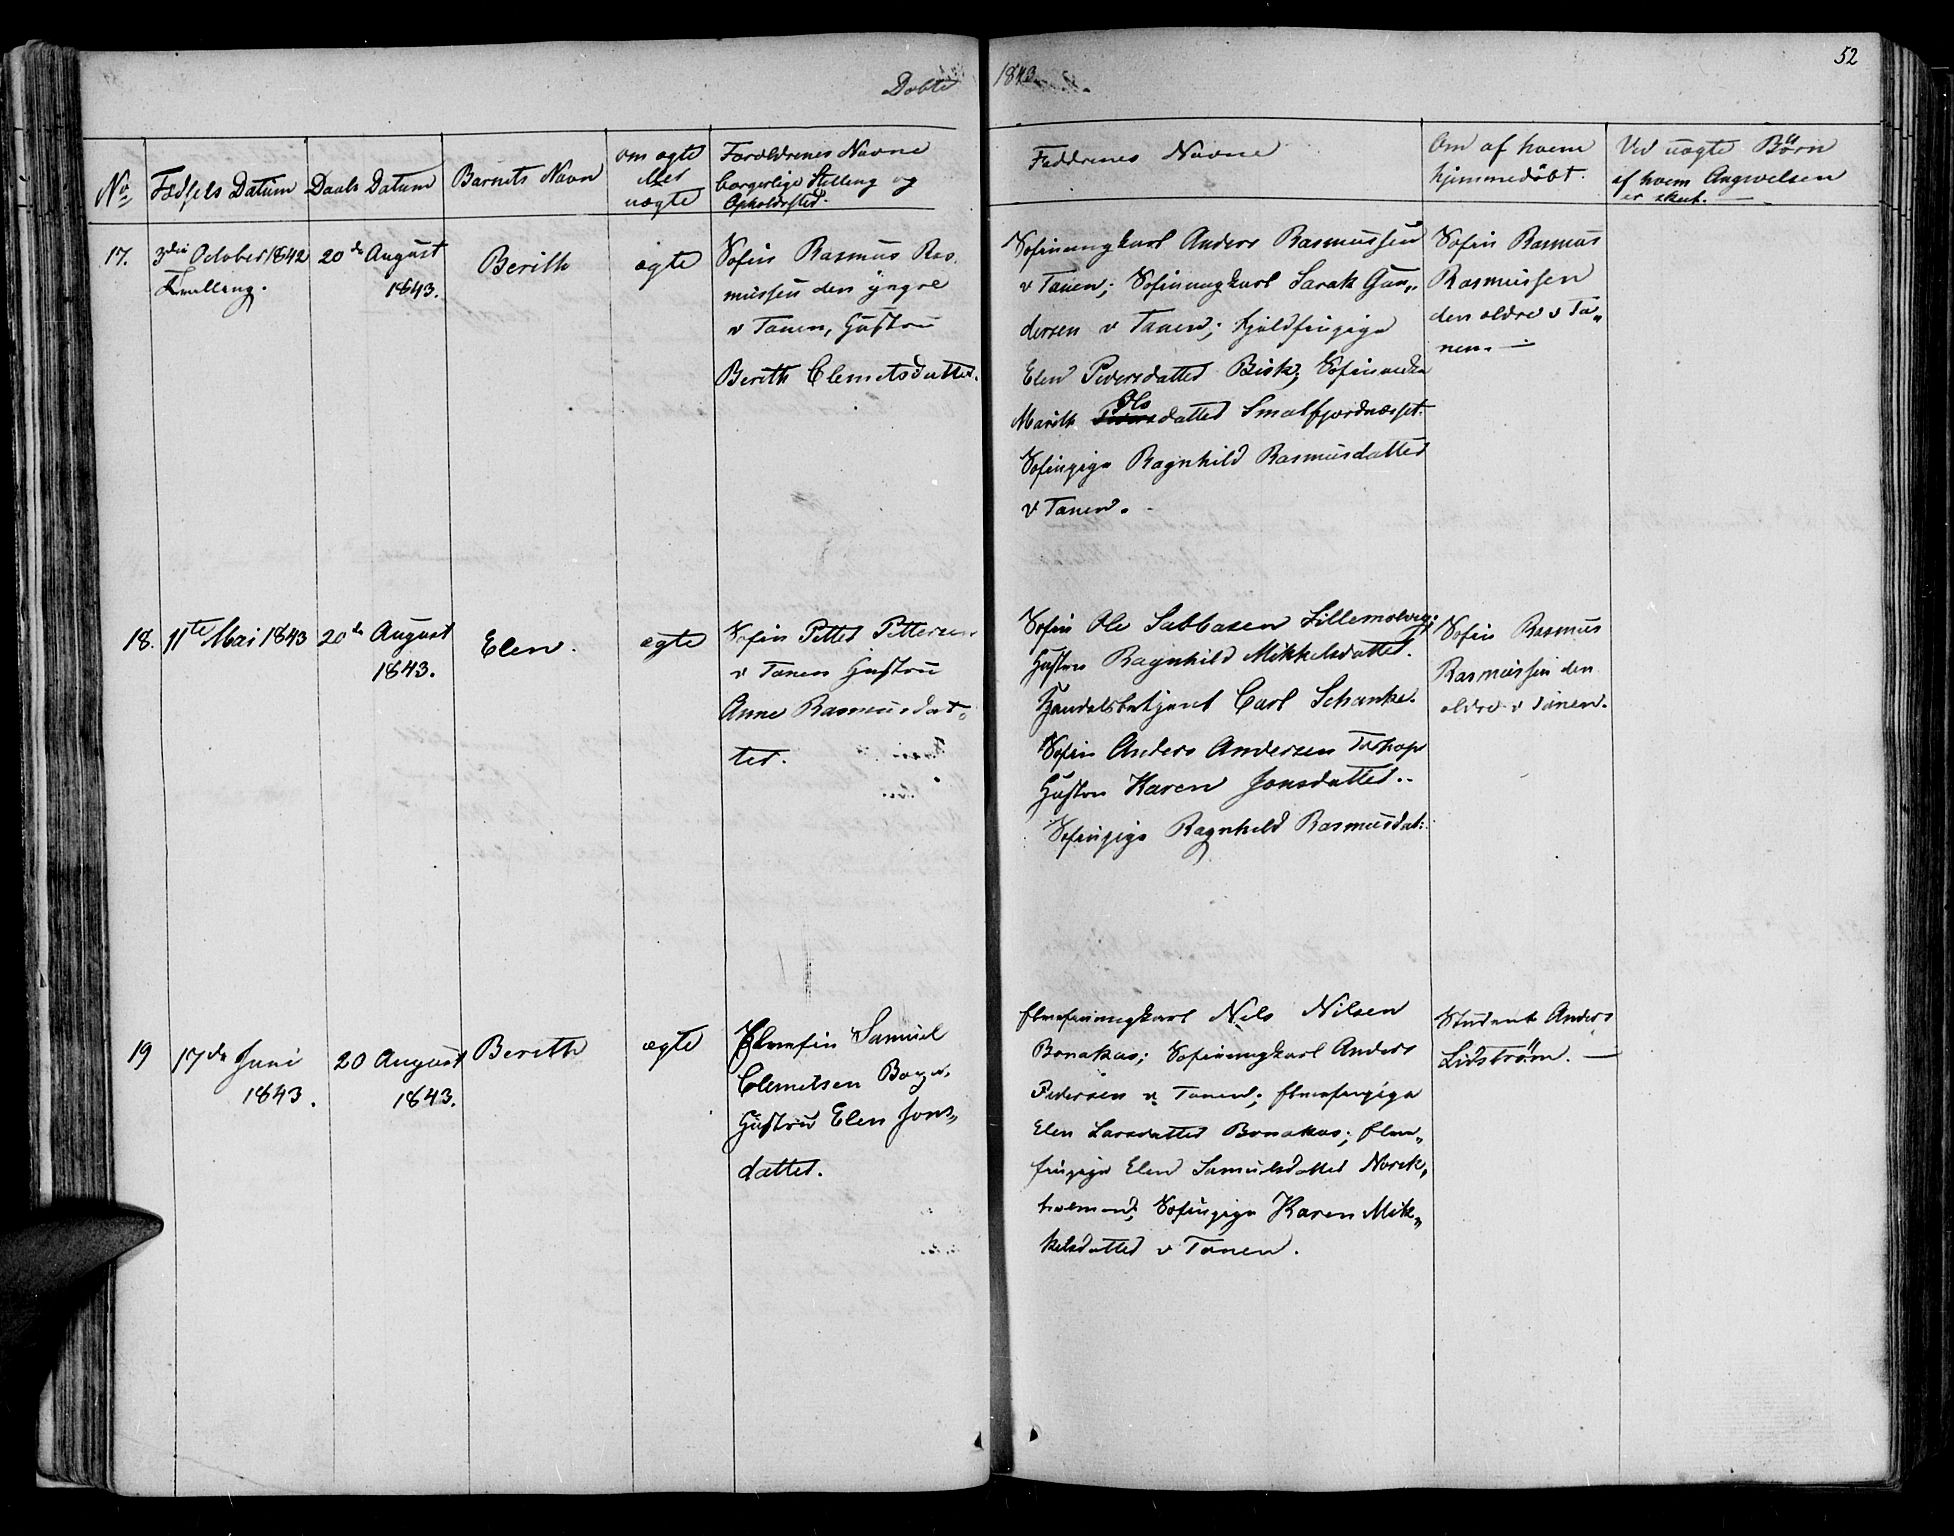 52
Døbte 1843
No Fødsels Datum Daabs Datum Barnets Navn om ægte eller uægte Forældrenes Navne borgerlige Stilling og Opholdssted.
Faddrenes Navne
Om af hvem hjemmedöbt.
Ved uægte Börn af hvem Angivelsen er skeet.
17.
3die October 1842
20de August
1843.
Berith
ægte
Søfin Rasmus Ras
mussen den yngre
v Tanen, Hustru
Berith Clemetsdatter.
Søfinungkarl Anders Rasmussen
v Tanen; Søfinungkarl Sarak Gun„
dersen v Tanen;
Elen Pedersdatter Birk;
Marith Ols datter Smalfjordnæsset.
Søfinpige Ragnhild Rasmusdatter
v Tanen.
Søfin Rasmus
Rasmussen
den ældre v Ta„
nen.
18.
11te Mai 1843
20de August
1843.
Elen.
ægte
Søfin Petter Pettersen
v Tanen Hustru
Anne Rasmusdat„
ter.
Søfin Ole Sabbasen Lillemolvig;
Hustru Ragnhild Mikkelsdatter.
Handelsbetjent Carl Schanke.
Søfin Anders Andersen Torhop
Hustru Karen Jonsdatter.
Søfinpige Ragnhild Rasmusdat:
Søfin Rasmus
Rasmussen den
ældre v Tanen.
19
17de Juni
1843.
20 August
1843.
Berith
ægte
Elvefin Samuel
Clemetsen
Hustru Elen Jons„
datter.
Elvefinungkarl Nils Nilsen
Bonakas; Søfinungkarl Anders
Pedersen v Tanen; Elvefinpige
Elen Larsdatter Bonakas; Elve„
finpige Elen Samuelsdatter Norsk„
holmen; Søfinpige Karen Mik„
kelsdatter v Tanen.
Student Anders
Lidström.